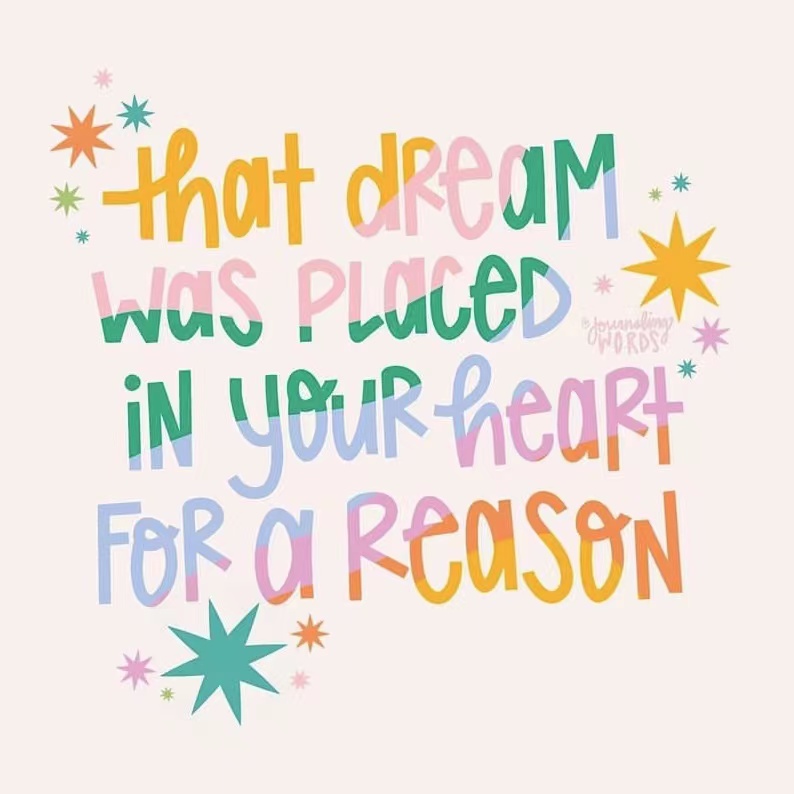 that dREaM
was PLaceD
iN youR heaRt
FOR a ReaSON
@journaling
WORDS